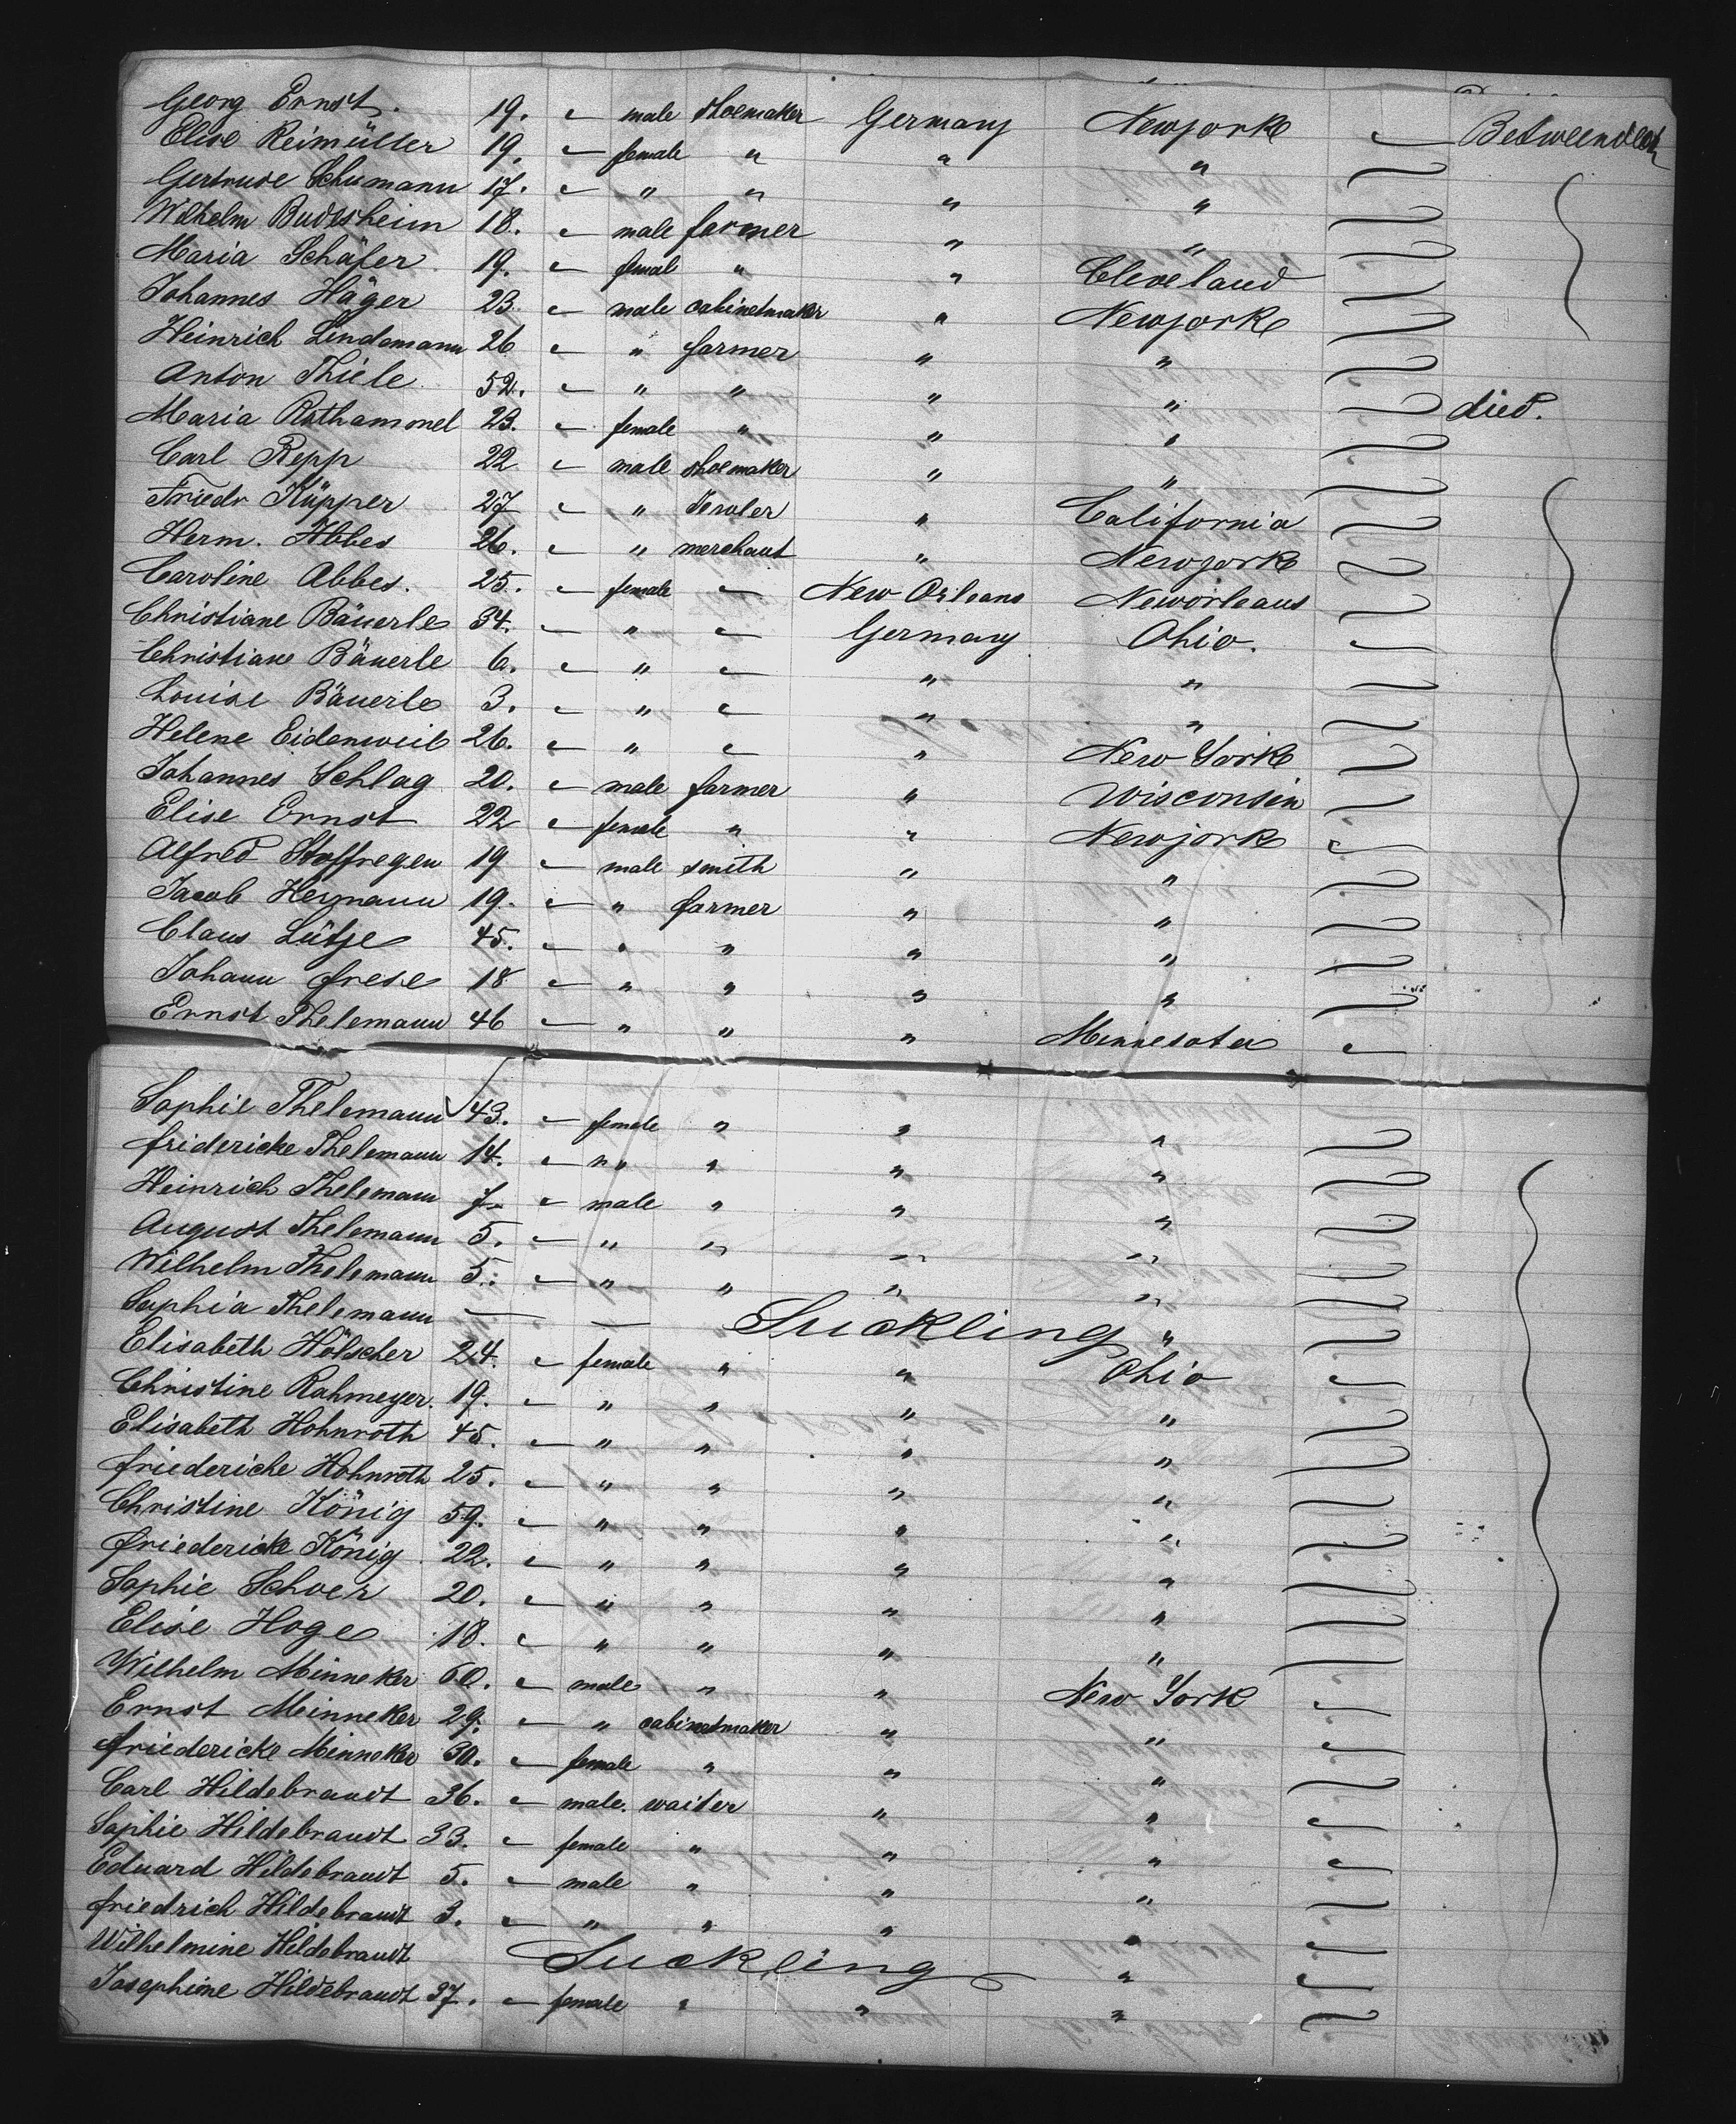 Georg Ernst. 19. male shoemaker Germany Newjork Betweendeck
Elise Reimüller 19. female " " "
Gertrude Schumann 17. " " " "
Wilhelm Budesheim 18. male farmer " "
Maria Schäfer 19. femal " " Cleveland
Johannes Häger 23. male cabinetmaker " Newjork
Heinrich Lindemann 26 " farmer " "
Anton Thiele 52. " " " " died.
Maria Rothammel 23. female " " "
Carl Repp 22 male shoemaker " "
Friedr Küpper 27 " " California
Herm. Abbes 26. " merchant " Newjork
Caroline Abbes. 25. female New Orleans Neworleans
Christiane Bäuerle 34. " Germany Ohio.
Christiane Bäuerle 6. " " "
Louise Bäuerle 3. " " "
Helene Eidenweil 26. " " New York
Johannes Schlag 20. male farmer " Wisconsin
Elise Ernst 22 female " " Newjork
Alfred Stoffregen 19 male smith " "
Jacob Heymann 19. " farmer " "
Claus Lütje 45. " " " "
Johann frese 18 " " " "
Ernst Thelemann 46 " " " Minnesota
Sophie Thelemann 43. female " " "
fridericke Thelemann 14. " " " "
Heinrich Thelemann 7. male " " "
August Thelemann 5. " " " "
Wilhelm Thelemann 5. " " " "
Sophia Thelemann — — Suckling "
Elisabeth Hölscher 24. female " " Ohio
Christine Rahmeyer. 19. " " " "
Elisabeth Hohnroth 45. " " " "
friedericke Hohnroth 25. " " " "
Christine König 59. " " " "
friedericke König 22. " " " "
Sophie Schoer 20. " " " "
Elise Hoge 18. " " " "
Wilhelm Minneker 60. male " " New York
Ernst Meinneker 29. " cabinetmaker " "
friedericke Minneker 30. female " " "
Carl Hildebrandt 36. male. waiter " "
Sophie Hildebrandt 33. female " " "
Eduard Hildebrandt 5. male " " "
friedrich Hildebrandt 3. " " " "
Wilhelmine Hildebrandt Suckling "
Josephine Hildebrandt 37. female " " "